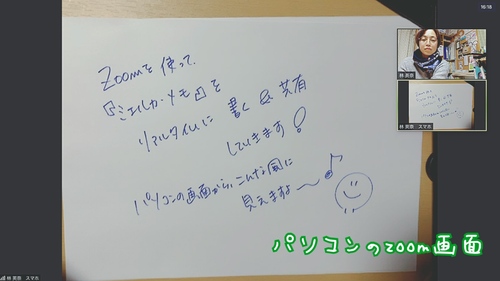 16:18
Zoomを使って、
『ミエルカ・メモ』を
リアルタイムに書く&共有
していきます!
パソコンの画面から、こんな風に
見えますよ〜
パソコンのzoom画面
スマホ